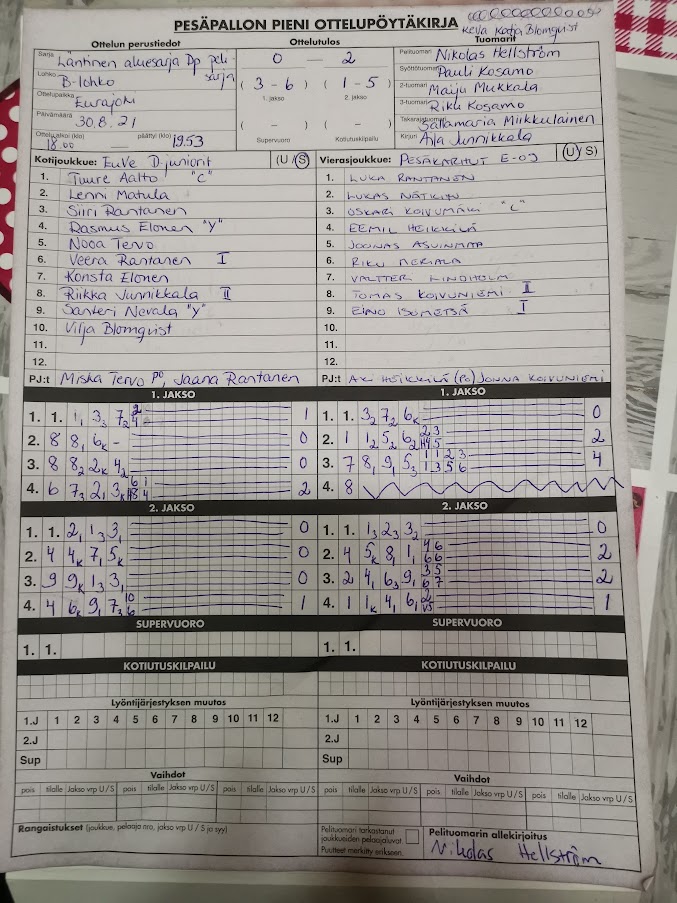 PESÄPALLON PIENI OTTELUPÖYTÄKIRJA
Kella Katja Blomqvist
Ottelun perustiedot
Ottelutulos
Tuomarit
Sarja Läntinen aluesarja Dp peli-
sarja
Lohko B-lohko
Ottelupaikka Eurajoki
Päivämäärä 30.8.21
Ottelu alkoi (klo) 18.00 päättyi (klo) 19.53
0 — 2
( 3 - 6 ) ( 1 - 5 )
1. jakso 2. jakso
( - ) ( - )
Supervuoro Kotiutuskilpailu
Pelituomari Nikolas Hellström
Syöttötuomari Pauli Kosamo
2-tuomari Maiju Mukkala
3-tuomari Riku Kosamo
Takarajatuomari Sallamaria Miikkulainen
Kirjuri Asla Junnikkala
Kotijoukkue: EuVe D juniorit (U/S)
1. Tuure Aalto "C"
2. Lenni Matula
3. Siiri Rantanen
4. Rasmus Elonen "Y"
5. Nooa Tervo
6. Veera Rantanen I
7. Konsta Elonen
8. Riikka Junnikkala II
9. Santeri Nevala "Y"
10. Vilja Blomqvist
11.
12.
PJ:t Miska Tervo PO, Jaana Rantanen
Vierasjoukkue: PESÄKARHUT E-09 (U/S)
1. LUKA RANTANEN
2. LUKAS NÄTKIN
3. OSKARI KOIVUMÄKI "C"
4. EEMIL HEIKKILÄ
5. JOONAS ASUINMAA
6. RIKU
7. VALTTERI LINDHOLM
8. TOMAS KOIVUNIEMI II
9. EINO ISOMETSÄ I
10.
11.
12.
PJ:t HEIKKILÄ (PO) JONNA KOIVUNIEMI
1. JAKSO
1. 1. 1, 3₃ 7₂ 2 4 1
2. 8 8, 6ₖ - 0
3. 8 8₂ 2ₖ 4₂ 0
4. 6 7₃ 2, 3ₖ 2
1. JAKSO
1. 1. 3₂ 7₂ 6ₖ 0
2. 1 1₂ 5₂ 6₂ 2
3. 7 8, 9, 5₃ 1 1 2 3 1 3 5 6 4
4. 8
2. JAKSO
1. 1. 2, 1₃ 3, 0
2. 4 4ₖ 7, 5ₖ 0
3. 9 9ₖ 1₃ 3, 0
4. 4 6ₖ 9, 7₃ 10 6 1
2. JAKSO
1. 1. 1₃ 2₃ 3₂ 0
2. 4 5ₖ 8, 1, 4 6 6 6 2
3. 2 4, 6₃ 9, 3 5 6 7 2
4. 1 1ₖ 4, 6, 1
SUPERVUORO
1. 1.
SUPERVUORO
1. 1.
KOTIUTUSKILPAILU
KOTIUTUSKILPAILU
Lyöntijärjestyksen muutos
1.J 1 2 3 4 5 6 7 8 9 10 11 12
2.J
Sup
Lyöntijärjestyksen muutos
1.J 1 2 3 4 5 6 7 8 9 10 11 12
2.J
Sup
Vaihdot
pois tilalle Jakso vrp U/S pois tilalle Jakso vrp U/S pois tilalle Jakso vrp U/S
Vaihdot
pois tilalle Jakso vrp U/S pois tilalle Jakso vrp U/S pois tilalle Jakso vrp U/S
Rangaistukset (joukkue, pelaaja nro, jakso vrp U / S ja syy)
Pelituomari tarkastanut
joukkueiden pelaajaluvat
Puutteet merkitty erikseen.
Pelituomarin allekirjoitus
Nikolas Hellström